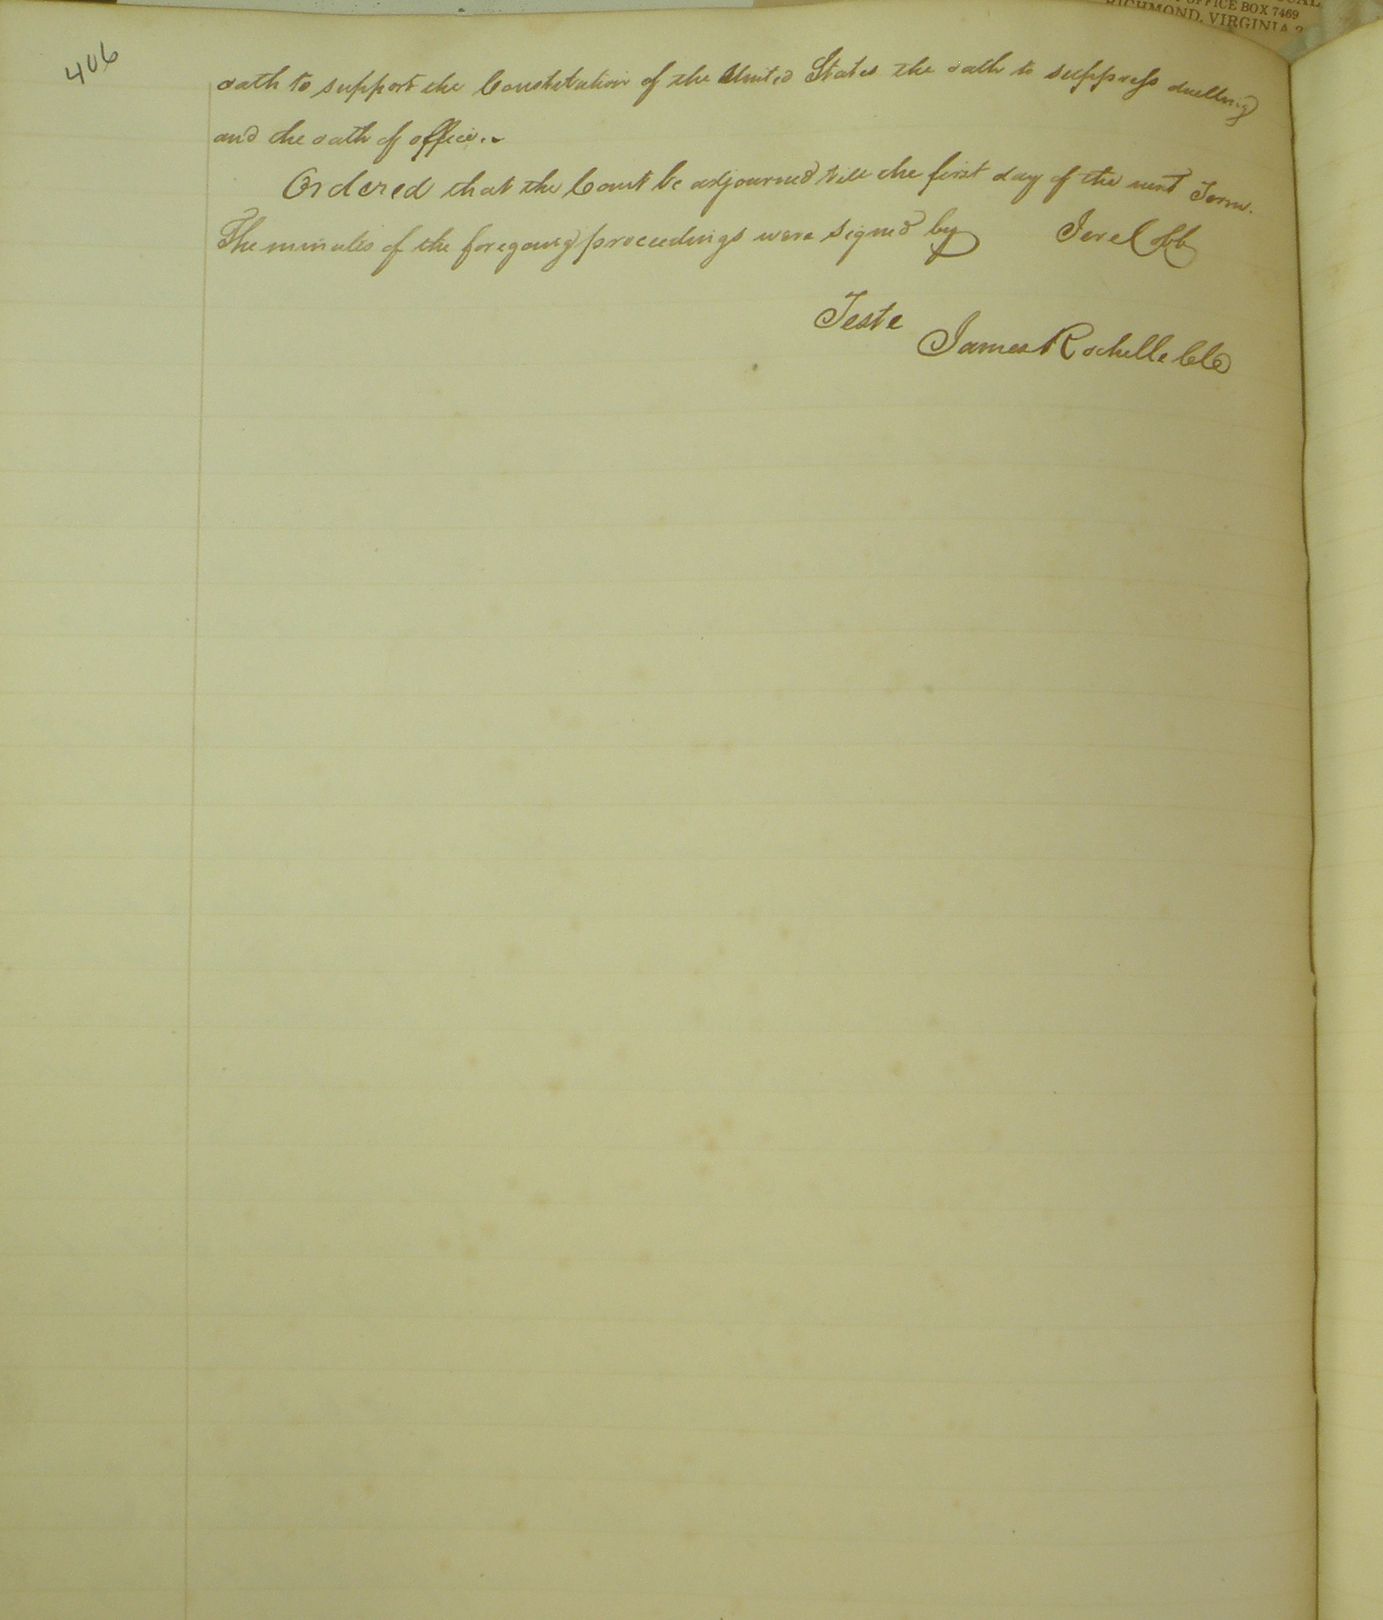 406
OFFICE BOX 7469
RICHMOND, VIRGINIA 2
oath to support the Constitution of the United States the oath to suppress duelling
and the oath of office.
Ordered that the Court be adjourned till the first day of the next Term.
The minutes of the foregoing proceedings were signed by Jere Cobb
Teste
James Rochelle Clk